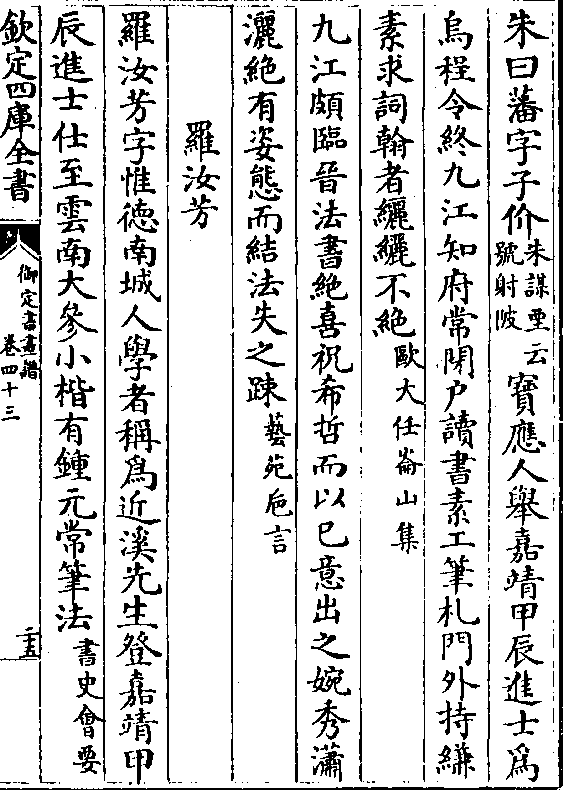 朱曰藩字子价朱謀㙔云號射陂寶應人舉嘉靖甲辰進士爲
烏程令終九江知府常閉户讀書素工筆札門外持縑
素求詞翰者纚纚不絶歐大任崙山集
九江頗臨晉法書絶喜祝希哲而以已意出之婉秀瀟
灑絶有姿態而結法失之踈藝苑巵言
羅汝芳
羅汝芳字惟德南城人學者稱爲近溪先生登嘉靖甲
辰進士仕至雲南大參小楷有鍾元常筆法書史會要
欽定四庫全書
御定書畫譜
卷四十三
二十五